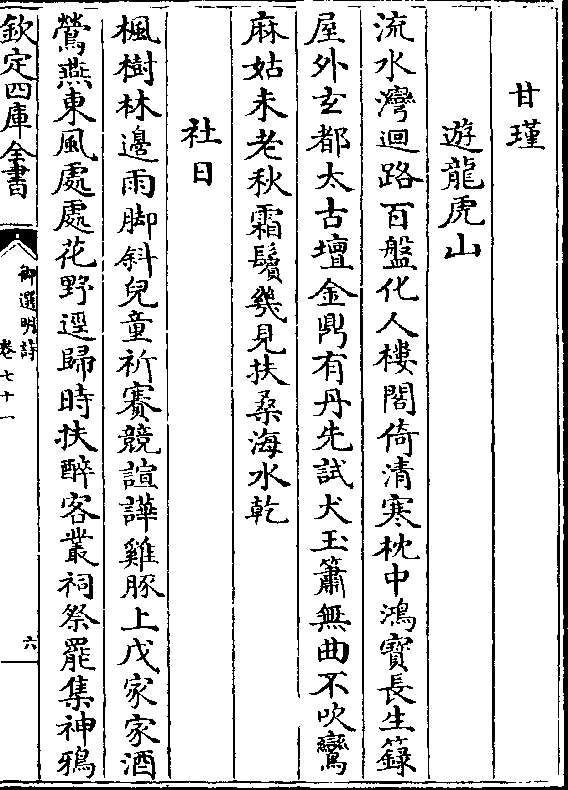 甘瑾
遊龍虎山
流水灣迴路百盤化人樓閣倚清寒枕中鴻寶長生籙
屋外玄都太古壇金鼎有丹先試犬玉簫無曲不吹鸞
麻姑未老秋霜鬢幾見扶桑海水乾
社日
楓樹林邊雨脚斜兒童祈賽競諠譁雞豚上戊家家酒
鶯燕東風處處花野逕歸時扶醉客叢祠祭罷集神鴉
欽定四庫全書
御選明詩
卷七十一
六